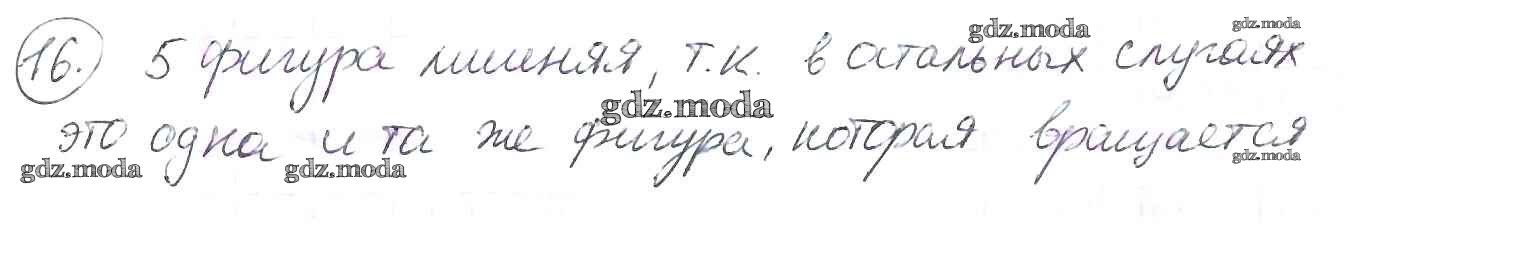 gdz.moda gdz.moda
16. 5 фигура лишняя, т.к. в остальных случаях
gdz.moda
это одна и та же фигура, которая вращается
gdz.moda gdz.moda gdz.moda